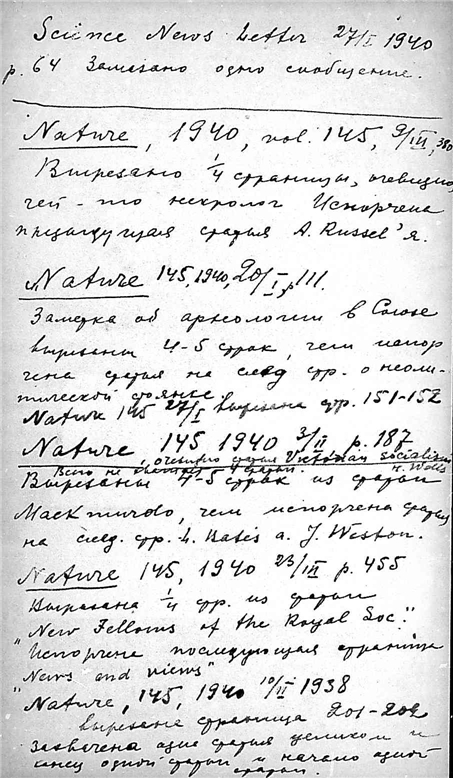 Science News Letter 27/I 1940
p. 64 Замазано одно сообщение.
Nature, 1940, vol. 145, 9/III, 380
Вырезано 1/4 страницы, очевидно,
чей-то некролог Испорчена
предыдущая статья A. Russel'я.
"Nature 145, 1940, 20/I, p 111.
Заметка об археологии в Союзе
вырезаны 4-5 строк, чем испор
чена статья на след стр. о неоли-
тической стоянке.
Nature 145 27/I вырезана стр. 151-152
Nature 145 1940 3/II p. 187
очевидно статья Victorian socialism
H. Wells
Вырезаны 4-5 строк из статьи
Mackmurdo, чем испорчена статья
на след. стр. L. Batis a. J. Weston.
Nature 145, 1940 23/III p. 455
Вырезана 1/4 стр. из статьи
"New Fellows of the Royal Soc."
Испорчена последующая страница
"News and views"
"Nature, 145, 1940 10/II 1938
вырезана страница 201-202
одна статья целиком и
конец одной статьи и начало одной
статьи